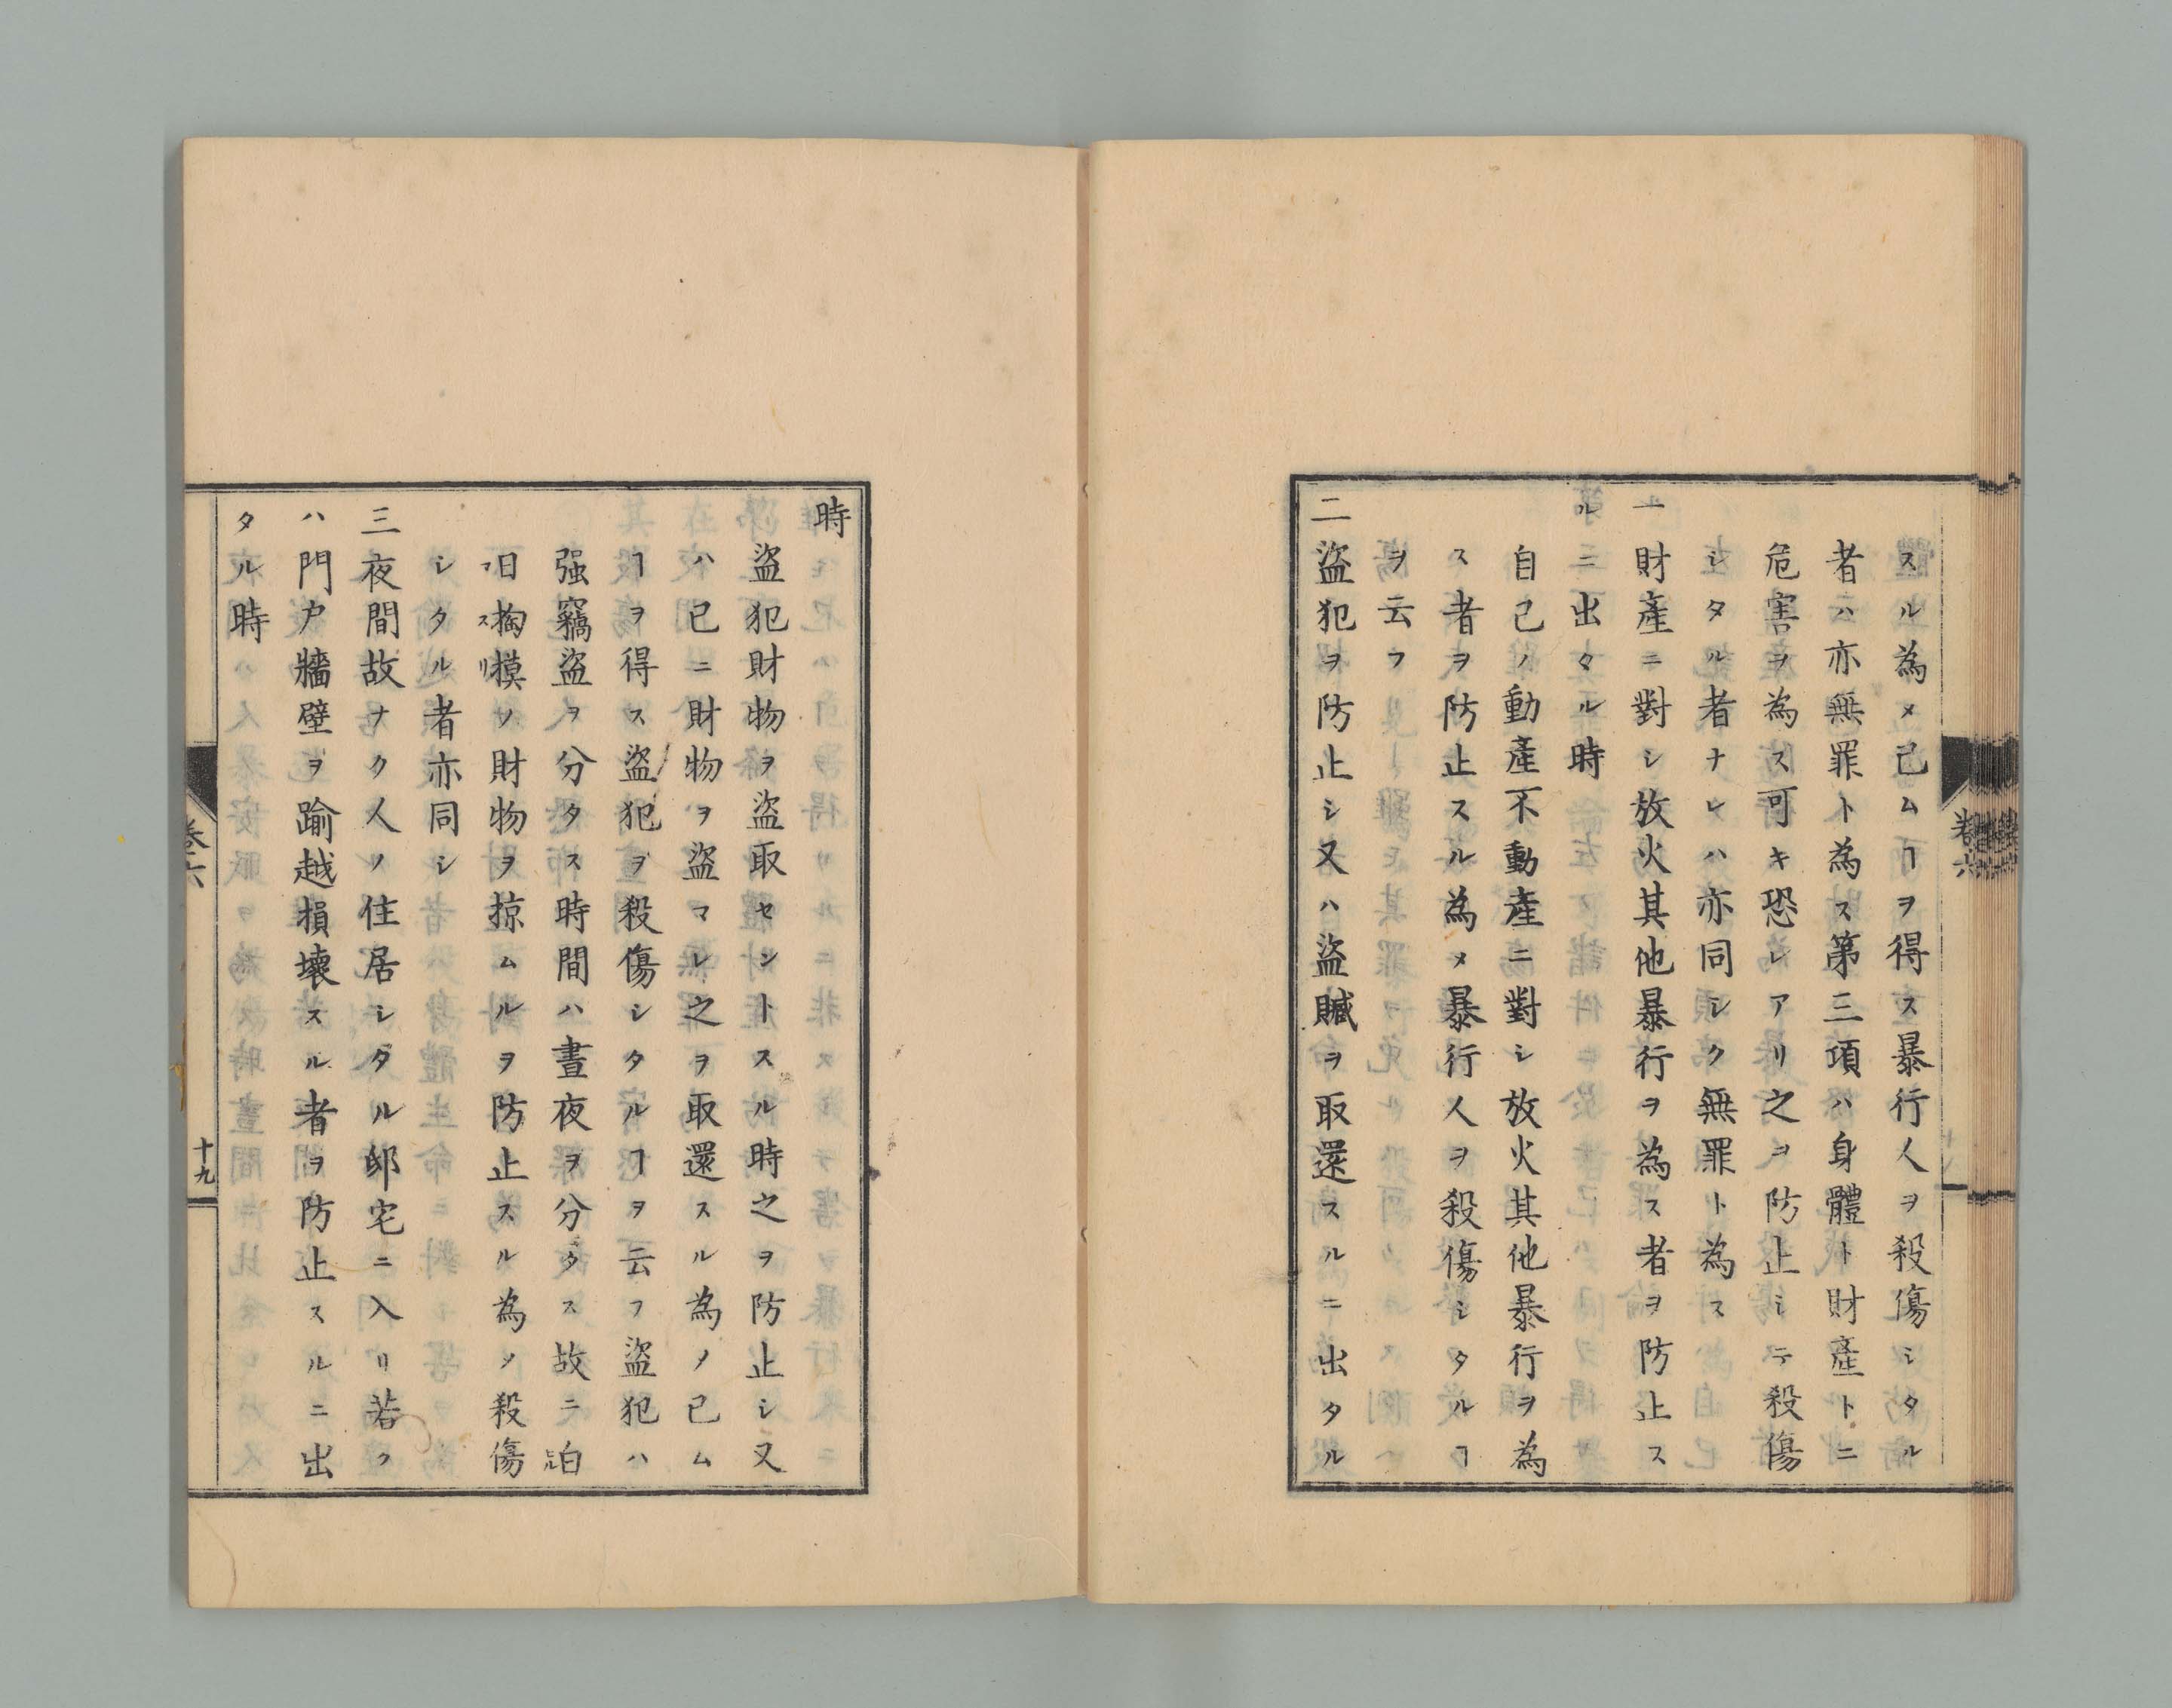 スル為メ已ムヿヲ得ス暴行人ヲ殺傷シタル
者ハ亦無罪ト為ス第三項ハ身體ト財産トニ
危害ヲ為ス可キ恐レアリ之ヲ防止シテ殺傷
シタル者ナレハ亦同シク無罪ト為ス
一財産ニ對シ放火其他暴行ヲ為ス者ヲ防止ス
ルニ出タル時
自己ノ動産不動産ニ對シ放火其他暴行ヲ為
ス者ヲ防止スル為メ暴行人ヲ殺傷シタルヿ
ヲ云フ
二盗犯ヲ防止シ又ハ盗贓ヲ取還スルニ出タル
卷六
時
盗犯財物ヲ盗取セントスル時之ヲ防止シ又
ハ已ニ財物ヲ盗マレ之ヲ取還スル為メ已ム
ヿヲ得ス盗犯ヲ殺傷シタルヿヲ云フ盗犯ハ
强竊盗ヲ分タス時間ハ晝夜ヲ分タス故ニ白
日掏摸ノ財物ヲ掠ムルヲ防止スル為メ殺傷
シタル者亦同シ
三夜間故ナク人ノ住居シタル邸宅ニ入リ若ク
ハ門戸牆壁ヲ踰越損壞スル者ヲ防止スルニ出
タル時
卷六
十九